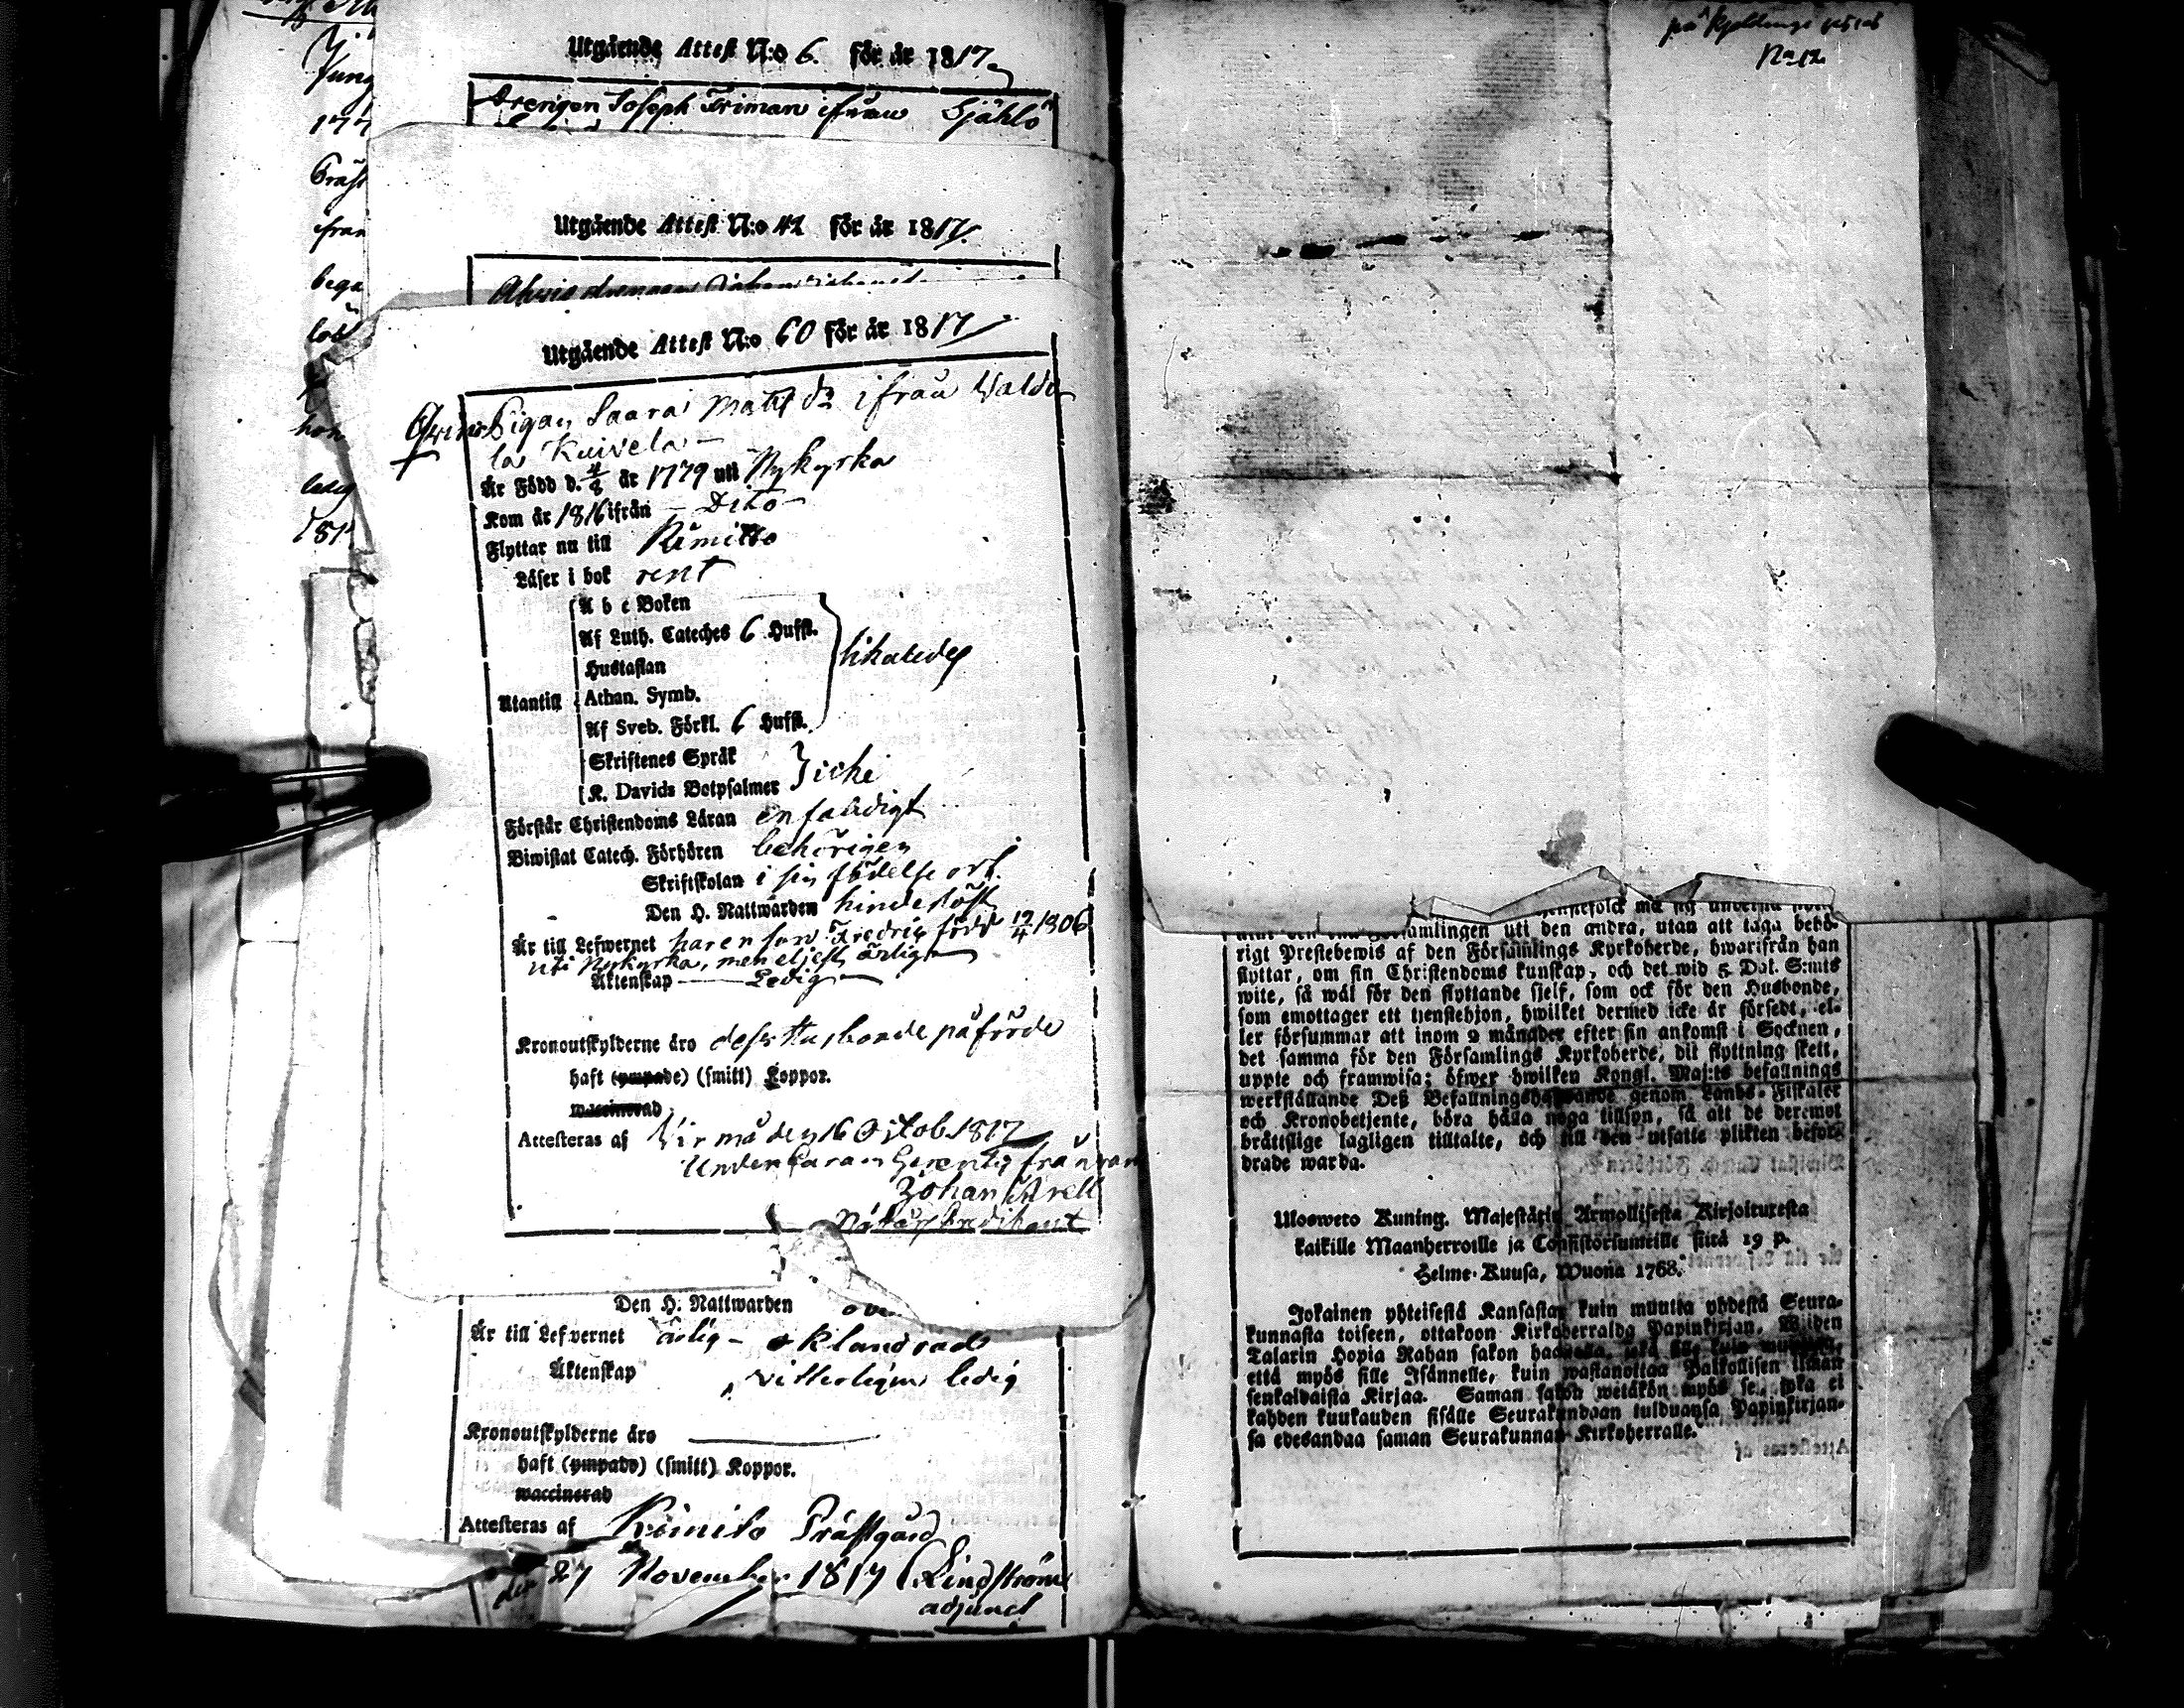 Utgående Attest N:o 6. för år 1817
Drengen Joseph Friman ifrån Sjählö
Utgående Attest N:o 42 för år 1817.
Utgående Attest N:o 60 för år 1817
Pigan Saara Matts dr ifrån Waldo
la Kuivela
Är Född d. 4/8 år 1779 uti Nykyrka
Kom år 1816 ifrån Dito
Flyttar nu till Kimitto
Läser i bok rent
Utantill
A b c Boken
Af Luth. Cateches 6 Hufst.
Hustaflan
Athan. Symb.
Af Sveb. Förkl. 6 Hufst.
likaledes
Skriftenes Språk
K. Davids Botpsalmer
icke
Förstår Christendoms Läran enfaldigt
Biwistat Catech. Förhören behörigen
Skriftskolan i sin födelse ort.
Den H. Nattwarden hinderlöst
Är till Lefwernet har en son Fredric född 12/4 1806
uti Nykyrka, men eljest ärlig
Äktenskap Ledig
Kronoutskylderne äro dess Husbonde påförde
haft (ympade) (smitt) Koppor.
waccinerad
Attesteras af Virmo den 16 Octob. 1817
Under Paran Herrens frånvaro
Johan Arell
Predikant
Den H. Nattwarden
Är till Lefwernet ärlig - oklandrad
Äktenskap witterligen ledig
Kronoutskylderne äro
haft (ympade) (smitt) Koppor.
waccinerad
Attesteras af Kimito Prästgård
den 27 November 1817 Lindström
adjunct
No 12
Prästg
ifrån
1817
samlingen uti den andra, utan att taga behö-
rigt Prestebewis af den Församlings Kyrkoherde, hwarifrån han
flyttar, om sin Christendoms kunskap, och det wid 5 Dal. S:mts
wite, så wäl för den flyttande sjelf, som ock för den Husbonde,
som emottager ett tjenstehjon, hwilket dermed icke är försedt, el-
ler försummar att inom 2 månader efter sin ankomst i Socknen,
det samma för den Församlings Kyrkoherde, dit flyttning skett,
uppte och framwisa; öfwer hwilken Kongl. Maj:ts befallnings
werkställande Deß Befallningshafwande genom Lands-Fiskaler
och Kronobetjente, böra hålla noga tillsyn, så att de deremot
brottslige lagligen tilltalte, och till den utsatte plikten befor-
drade warda.
Ulosweto Kuning. Majestätin Armollisesta Kirjoituresta
kaikille Maanherroille ja Consistoriumeille siitä 19 p.
Helme-Kuusa, Wuona 1768.
Jokainen yhteisestä Kansasta, kuin muutta yhdestä Seura-
kunnasta toiseen, ottakoon Kirkoherralda Papinkirjan, Wiiden
Talarin Hopia Rahan sakon
että myös sille Isännelle, kuin wastanottaa Palkollisen ilman
senkaldaista Kirjaa. Saman sakon wetäkön myös se, joka ei
kahden kuukauden sisälle Seurakundaan tulduansa Papinkirjan-
sa edesandaa saman Seurakunnan Kirkoherralle.